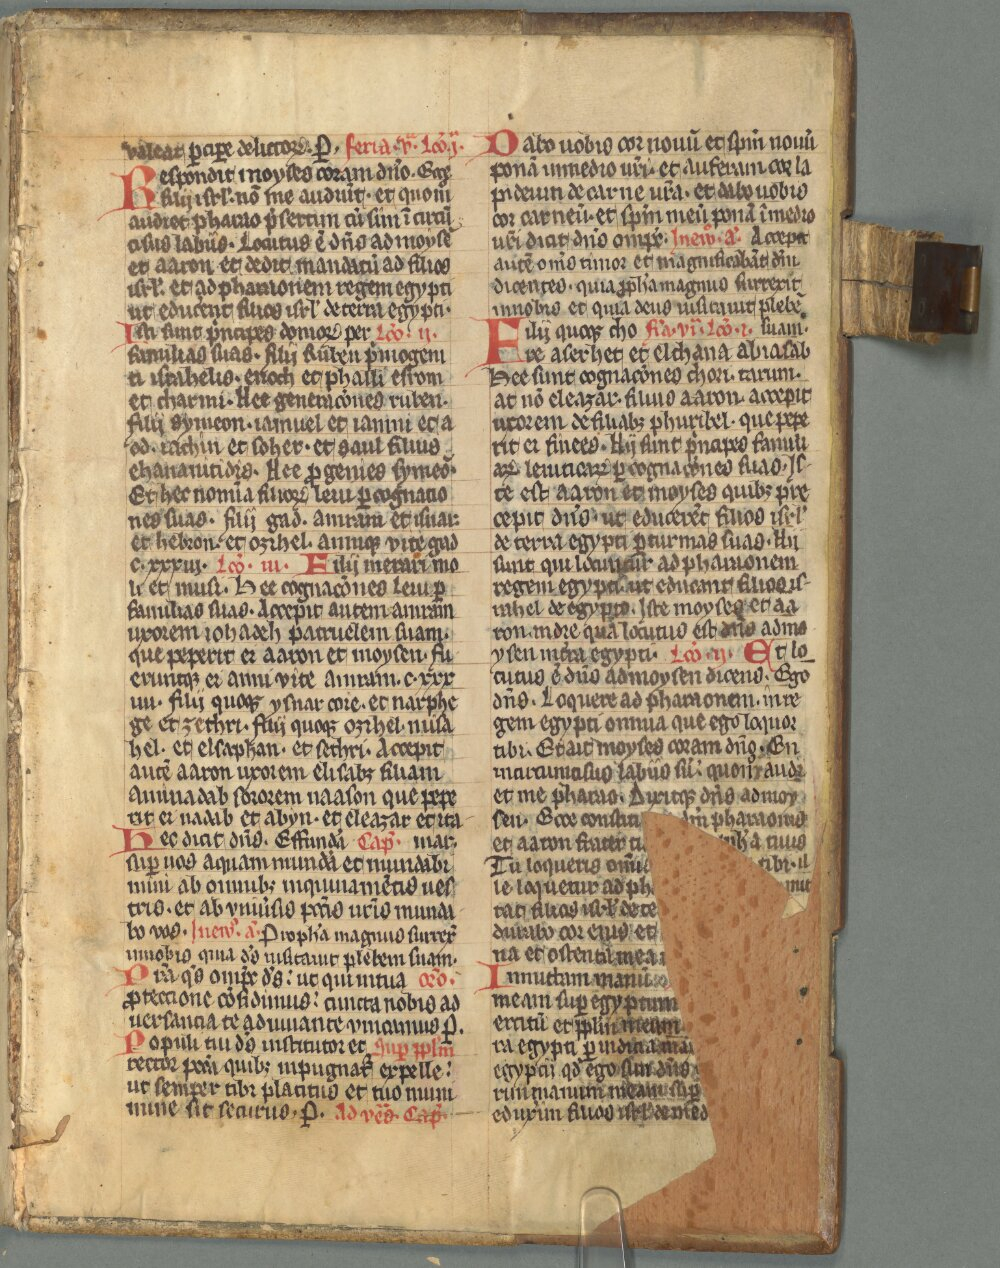 valeat p̄cipe delictoꝝ. P. feria .v. Lc̄o .i.
Respondit moyses coram dn̄o. Ecce
filij isrl̓. nō me audiūt. et quom̄
audiet pharao p̄sertim cū sim ī circū
cisus labiis. Locutus ē dn̄s ad moysē
et aaron et dedit mandatū ad filios
isrl̓. et ad pharaonem regem egypti
ut educerēt filios isrl̓ de terra egypti.
Isti sunt p̄ncipes domoꝝ per Lc̄o .ii.
familias suas. filij Ruben p̄mogeni
ti israhelis. enoch et phallu esrom
et charmi. Hee generac̄ones ruben.
filij symeon. iamuel et iamin et a
od. iachin et soher. et saul filius
chananitidis. Hee p̄genies symeō.
Et hec nomīa filioꝝ leui p̄ cognatio
nes suas. filij gad. amram et isuar
et hebron. et ozihel. anniqꝫ vite gad
c.xxxiii. Lc̄o .iii. Filij merari mo
li et musi. Hee cognac̄ones leui p̄
familias suas. Accepit autem amram
uxorem iohabeh patruelem suam.
que peperit ei aaron et moysen. fu
eruntqꝫ ei anni vite amram. c.xxx
vii. filij quoqꝫ ysuar core. et naphe
ge et zethri. filij quoqꝫ ozihel. misa
hel. et elsaphan. et sethri. Accepit
autē aaron uxorem elisabꝫ filiam
Aminadab sororem naason que pepe
rit ei nadab et abyu. et eleazar et ita
Hec dicit dn̄s. Effundā Cap̄. mar.
sup̄ uos aquam mundā et mundabi
mini ab omnibꝫ inquinamentis ves
tris. et ab vniūsis pc̄tis uestris munda
bo vos. Inew̄. a. Propha magnus surrex̄
in nobis quia ds̄ visitauit plebem suam.
Pr̄a qs̄ omp̄r ds̄: ut qui in tua oro.
p̄teccione cōfidimus: cuncta nobis ad
uersancia te adiuuante vincamus P.
Populi tui ds̄ institutor et Sup̄ pplm̄
rector pc̄ta quibꝫ inpugnat̄ expelle:
ut semper tibi placitus et tuo muni
mine sit securus. P. Ad vēs. Cap̄.
Dabo uobis cor nouū et sp̄m nouū
ponā in medio vr̄i. et auferam cor la
pideum de carne vr̄a. et dabo uobis
cor carneū. et sp̄m meū ponā ī medio
vr̄i dicit dn̄s omp̄r. Inew̄. a. Accepit
autē om̄s timor et magnificabāt dm̄
dicentes. quia p̄pha magnus surrexit
in nobis et quia deus visitauit plebē.
Filij quoqꝫ cho fīa .vi. Lc̄o .i. suam.
re aser het et elchana abiasab
Hee sunt cognac̄ones chori. tarum.
at nō eleazar. filius aaron. accepit
uxorem de filiabꝫ phutihel. que pepe
rit ei finees. Hij sunt p̄ncipes famili
aꝝ leuiticaꝝ p̄ cognac̄ones suas. Is
te est aaron et moyses quibꝫ pre
cepit dn̄s. ut educerēt filios isrl̓
de terra egypti p̄ turmas suas. Hij
sunt qui locuntur ad pharaonem
regem egypti. ut educant filios is
rahel de egypto. Iste moyses et aa
ron. in die qua locutus est dn̄s ad mo
ysen in terra egypti. Lc̄o .ii. Et lo
cutus ē dn̄s ad moysen dicens. Ego
dn̄s. Loquere ad pharaonem. in re
gem egypti omnia que ego loquor
tibi. Et ait moyses coram dn̄o. En
incircumcisus labiis sū: quom̄ audi
et me pharao. Dixitqꝫ dn̄s ad moy
sen. Ecce constitu dm̄ pharaonis
et aaron frater tu ph̄a tuus
Tu loqueris om̄ia tibi. il
le loquetur ad ph mit
tat filios isrl̓ de te
durabo cor eius et
na et ostenta mea i
Inmittam manū
meam sup̄ egyptum
ercitū et pplm̄ meum
ra egypti p̄ iudicia ma
egyptii qd̄ ego sum dn̄s
rim manum meam sup̄
eduxim filios isrl̓ de med